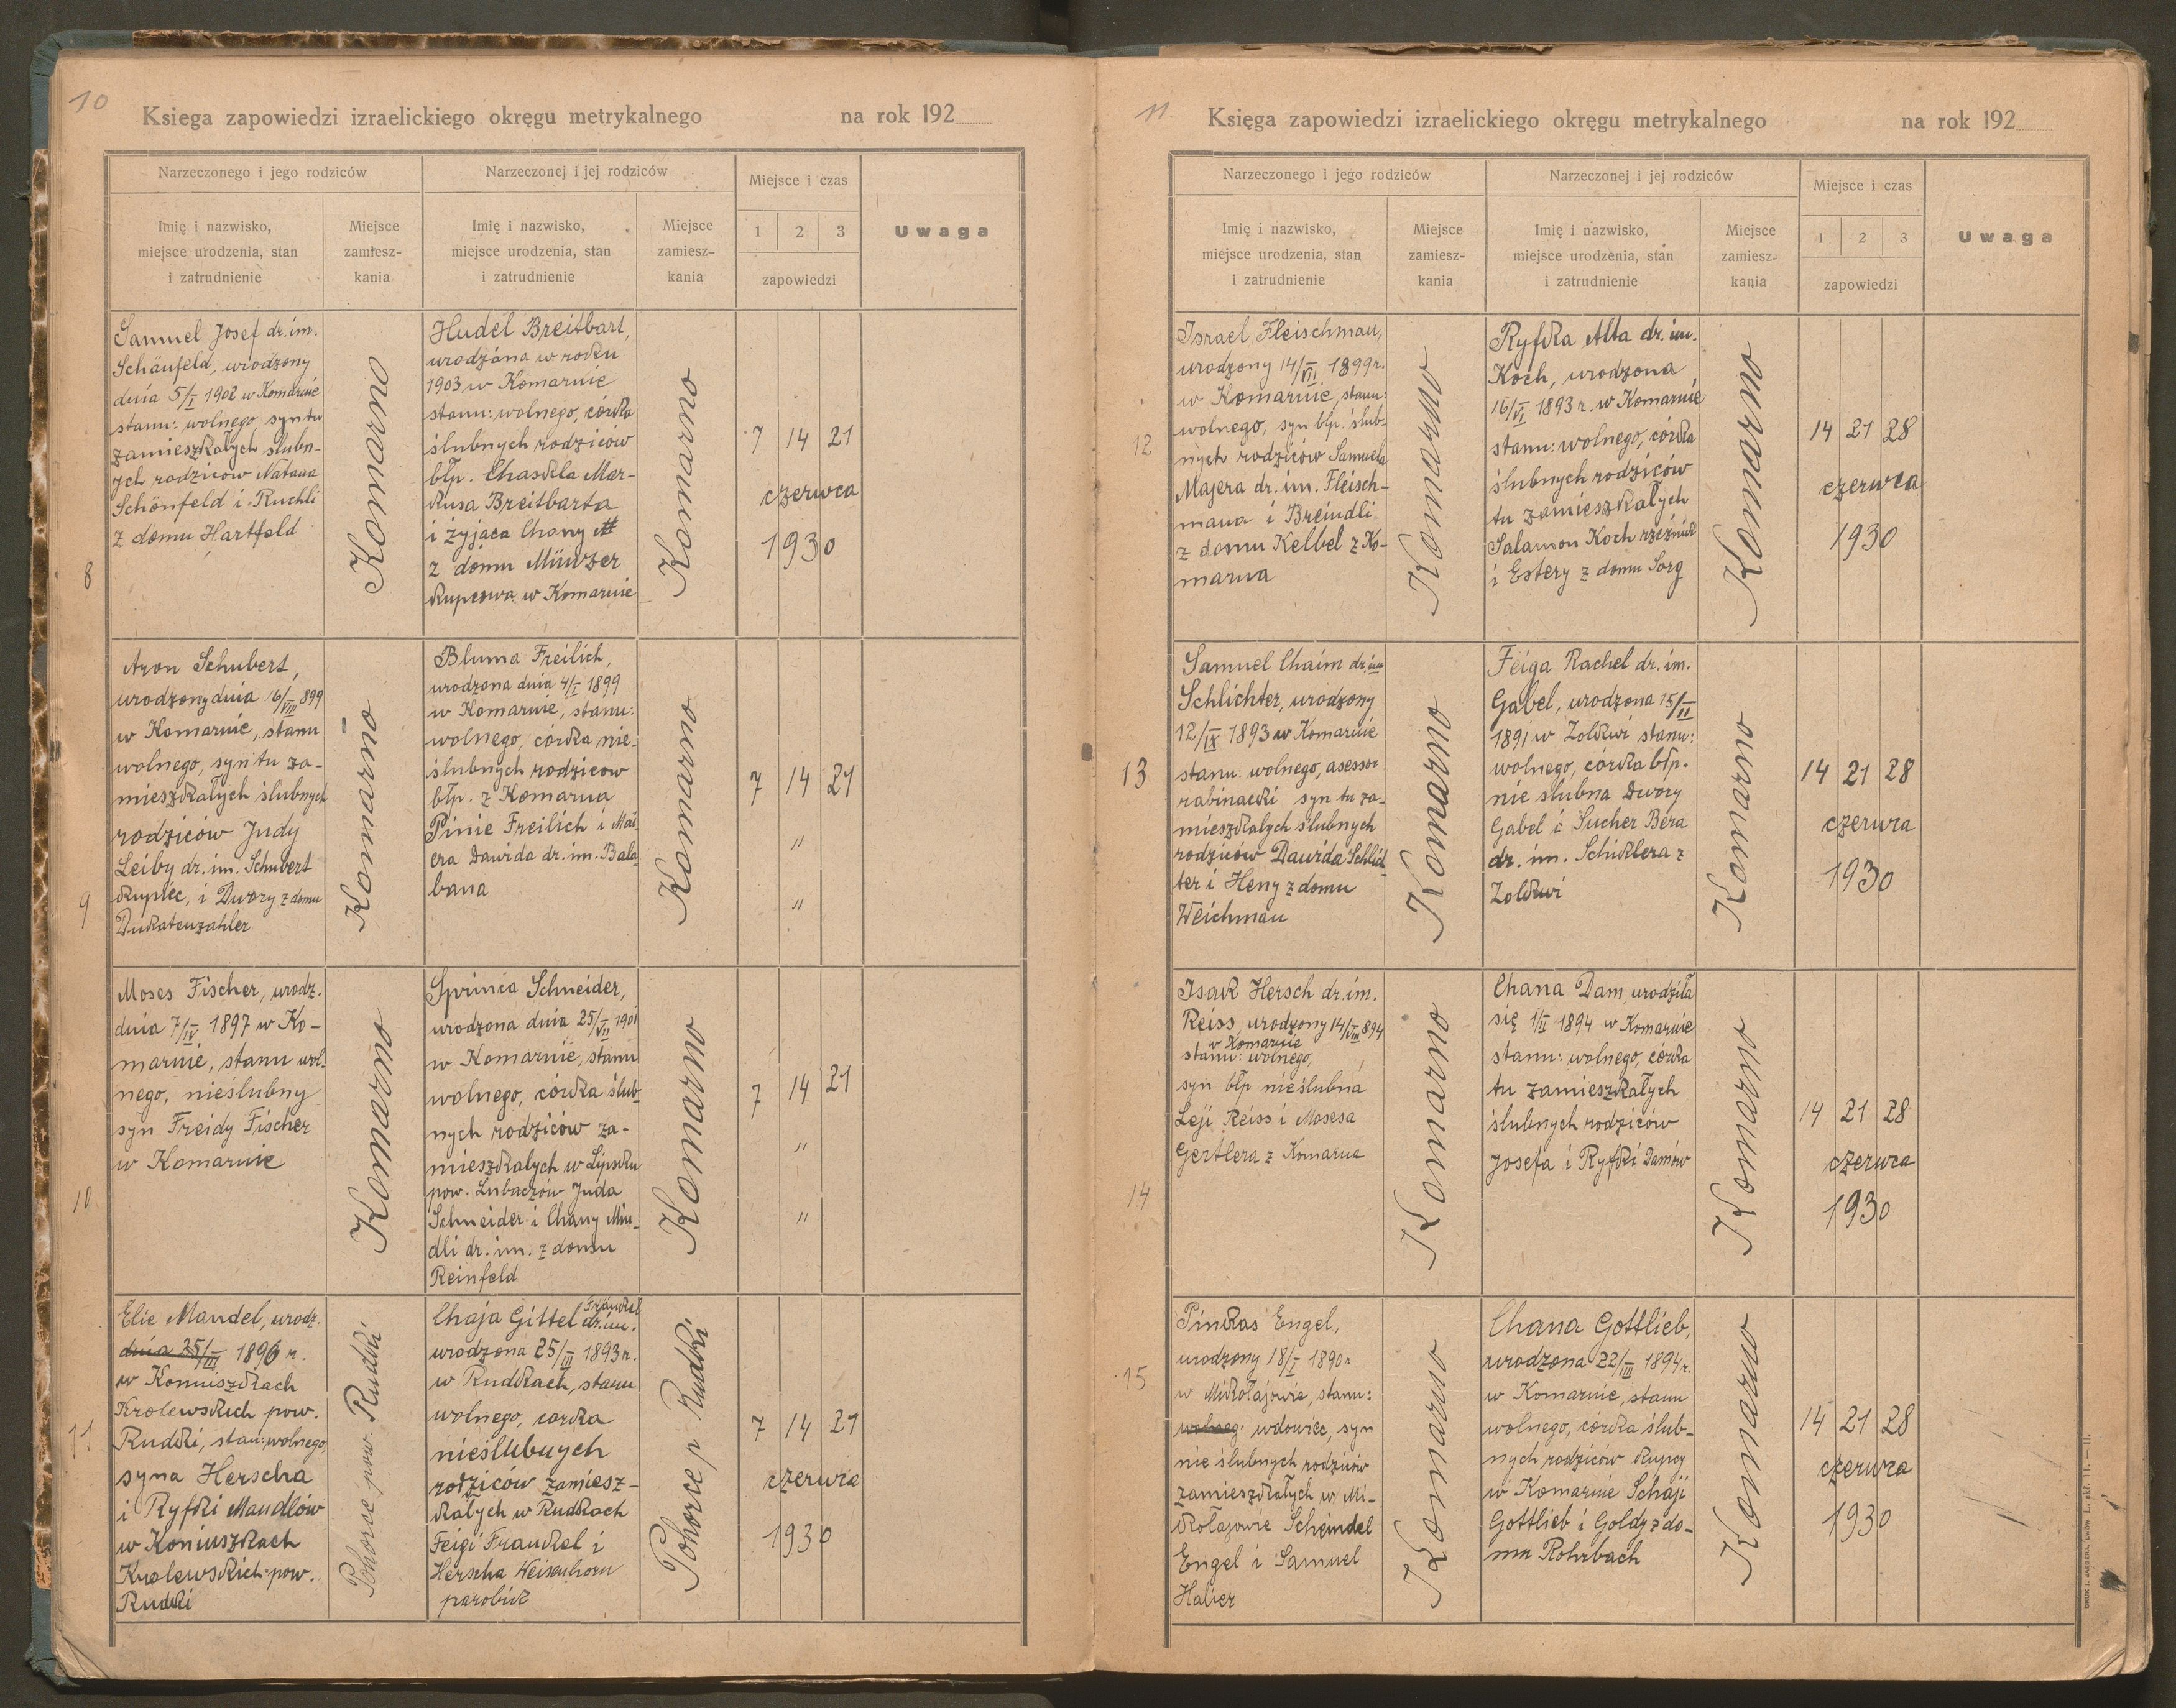 10
Ksiega zapowiedzi izraelickiego okręgu metrykalnego na rok 192
Narzeczonego i jego rodziców
Narzeczonej i jej rodziców
Miejsce i czas
Uwaga
Imię i nazwisko,
miejsce urodzenia, stan
i zatrudnienie
Miejsce
zamiesz-
kania
Imię i nazwisko,
miejsce urodzenia, stan
i zatrudnienie
Miejsce
zamiesz-
kania
1 2 3
zapowiedzi
8
Samuel Josef dr. im.
Schönfeld, urodzony
dnia 5/I 1902 w Komarnie
stanu: wolnego, syn tu
zamieszkałych ślubn-
ych rodziców Natana
Schönfeld i Ruchli
z domu Hartfeld
Komarno
Hudel Breitbart,
urodzona w roku
1903 w Komarnie
stanu: wolnego, córka
ślubnych rodziców
błp. Chaskla Mar-
kusa Breitbarta
i żyjąca Chany
z domu Münzer
kupcowa w Komarnie
Komarno
7 14 21
czerwca
1930
9
Aron Schubert,
urodzony dnia 16/VIII 899
w Komarnie, stanu
wolnego, syn tu za-
mieszkałych ślubnych
rodziców Judy
Leiby dr. im. Schubert
kupiec, i Dwory z domu
Dukatenzahler
Komarno
Bluma Freilich,
urodzona dnia 4/I 1899
w Komarnie, stanu:
wolnego, córka nie-
ślubnych rodziców
błp. z Komarna
Pinie Freilich i Mai-
era Dawida dr. im. Bala-
bana
Komarno
7 14 21
"
"
10
Moses Fischer, urodz.
dnia 7/IV 1897 w Ko-
marnie, stanu wol.
nego, nieślubny
syn Freidy Fischer
w Komarnie
Komarno
Sprinca Schneider,
urodzona dnia 25/VII 1901
w Komarnie, stanu
wolnego, córka ślub-
nych rodziców za-
mieszkałych w Lipsku
pow. Lubaczów Juda
Schneider i Chany Min-
dli dr. im. z domu
Reinfeld
Komarno
7 14 21
"
"
11
Elie Mandel, urodz.
dnia 25/III 1896 r.
w Koniuszkach
Krolewskich pow.
Rudki, stan: wolnego,
syna Herscha
i Ryfki Mandlów
w Koniuszkach
Krolewskich pow.
Rudki
Pohorce pow. Rudki
Chaja Gittel Fränkel dr. im.
urodzona 25/III 1893 r.
w Rudkach, stanu
wolnego, corka
nieślubnych
rodziców zamiesz-
kałych w Rudkach
Feigi Frankel i
Herscha Weisenhorn
parobick
Pohorce p Rudki
7 14 21
czerwca
1930
11
Księga zapowiedzi izraelickiego okręgu metrykalnego na rok 192
Narzeczonego i jego rodziców
Narzeczonej i jej rodziców
Miejsce i czas
Uwaga
Imię i nazwisko,
miejsce urodzenia, stan
i zatrudnienie
Miejsce
zamiesz-
kania
Imię i nazwisko,
miejsce urodzenia, stan
i zatrudnienie
Miejsce
zamiesz-
kania
1 2 3
zapowiedzi
12
Israel Fleischman,
urodzony 14/VII 1899 r.
w Komarnie, stanu:
wolnego, syn błp. ślub-
nych rodziców Samuela
Majera dr. im. Fleisch-
mana i Breindli
z domu Kelbel z Ko-
marna
Komarno
Ryfka Alta dr. im.
Koch, urodzona
16/VI 1893 r. w Komarnie
stanu: wolnego, córka
ślubnych rodziców
tu zamieszkałych
Salamon Koch rzeźnik
i Estery z domu Sorg
Komarno
14 21 28
czerwca
1930
13
Samuel Chaim dr. im
Schlichter, urodzony
12/IX 1893 w Komarnie
stanu: wolnego, asessor
rabinacki syn tu za-
mieszkałych ślubnych
rodziców Dawida Schlich-
ter i Heny z domu
Weichman
Komarno
Feiga Rachel dr. im.
Gabel, urodzona 15/II
1891 w Zolkwi stanu:
wolnego, córka błp.
nie slubna Dwory
Gabel i Sucher Bera
dr. im. Schiklera z
Zolkwi
Komarno
14 21 28
czerwca
1930
14
Isak Hersch dr. im.
Reiss, urodzony 14/VIII 894
w Komarnie
stanu: wolnego,
syn błp nieślubna
Leji Reiss i Mosesa
Gertlera z Komarna
Komarno
Chana Dam, urodziła
się 1/II 1894 w Komarnie
stanu: wolnego, córka
tu zamieszkałych
ślubnych rodziców
Josefa i Ryfki Damów
Komarno
14 21 28
czerwca
1930
15
Pinkas Engel,
urodzony 18/I 1890 r
w Mikołajowie, stanu:
wolneg. wdowiec, syn
nie ślubnych rodziców
zamieszkałych w Mi-
kołajowie Scheindel
Engel i Samuel
Halier
Komarno
Chana Gottlieb,
urodzona 22/III 1894 r.
w Komarnie, stanu
wolnego, corka ślub-
nych rodziców kupcy
w Komarnie Schaji
Gottlieb i Goldy z do-
mu Rohrbach
Komarno
14 21 28
czerwca
1930